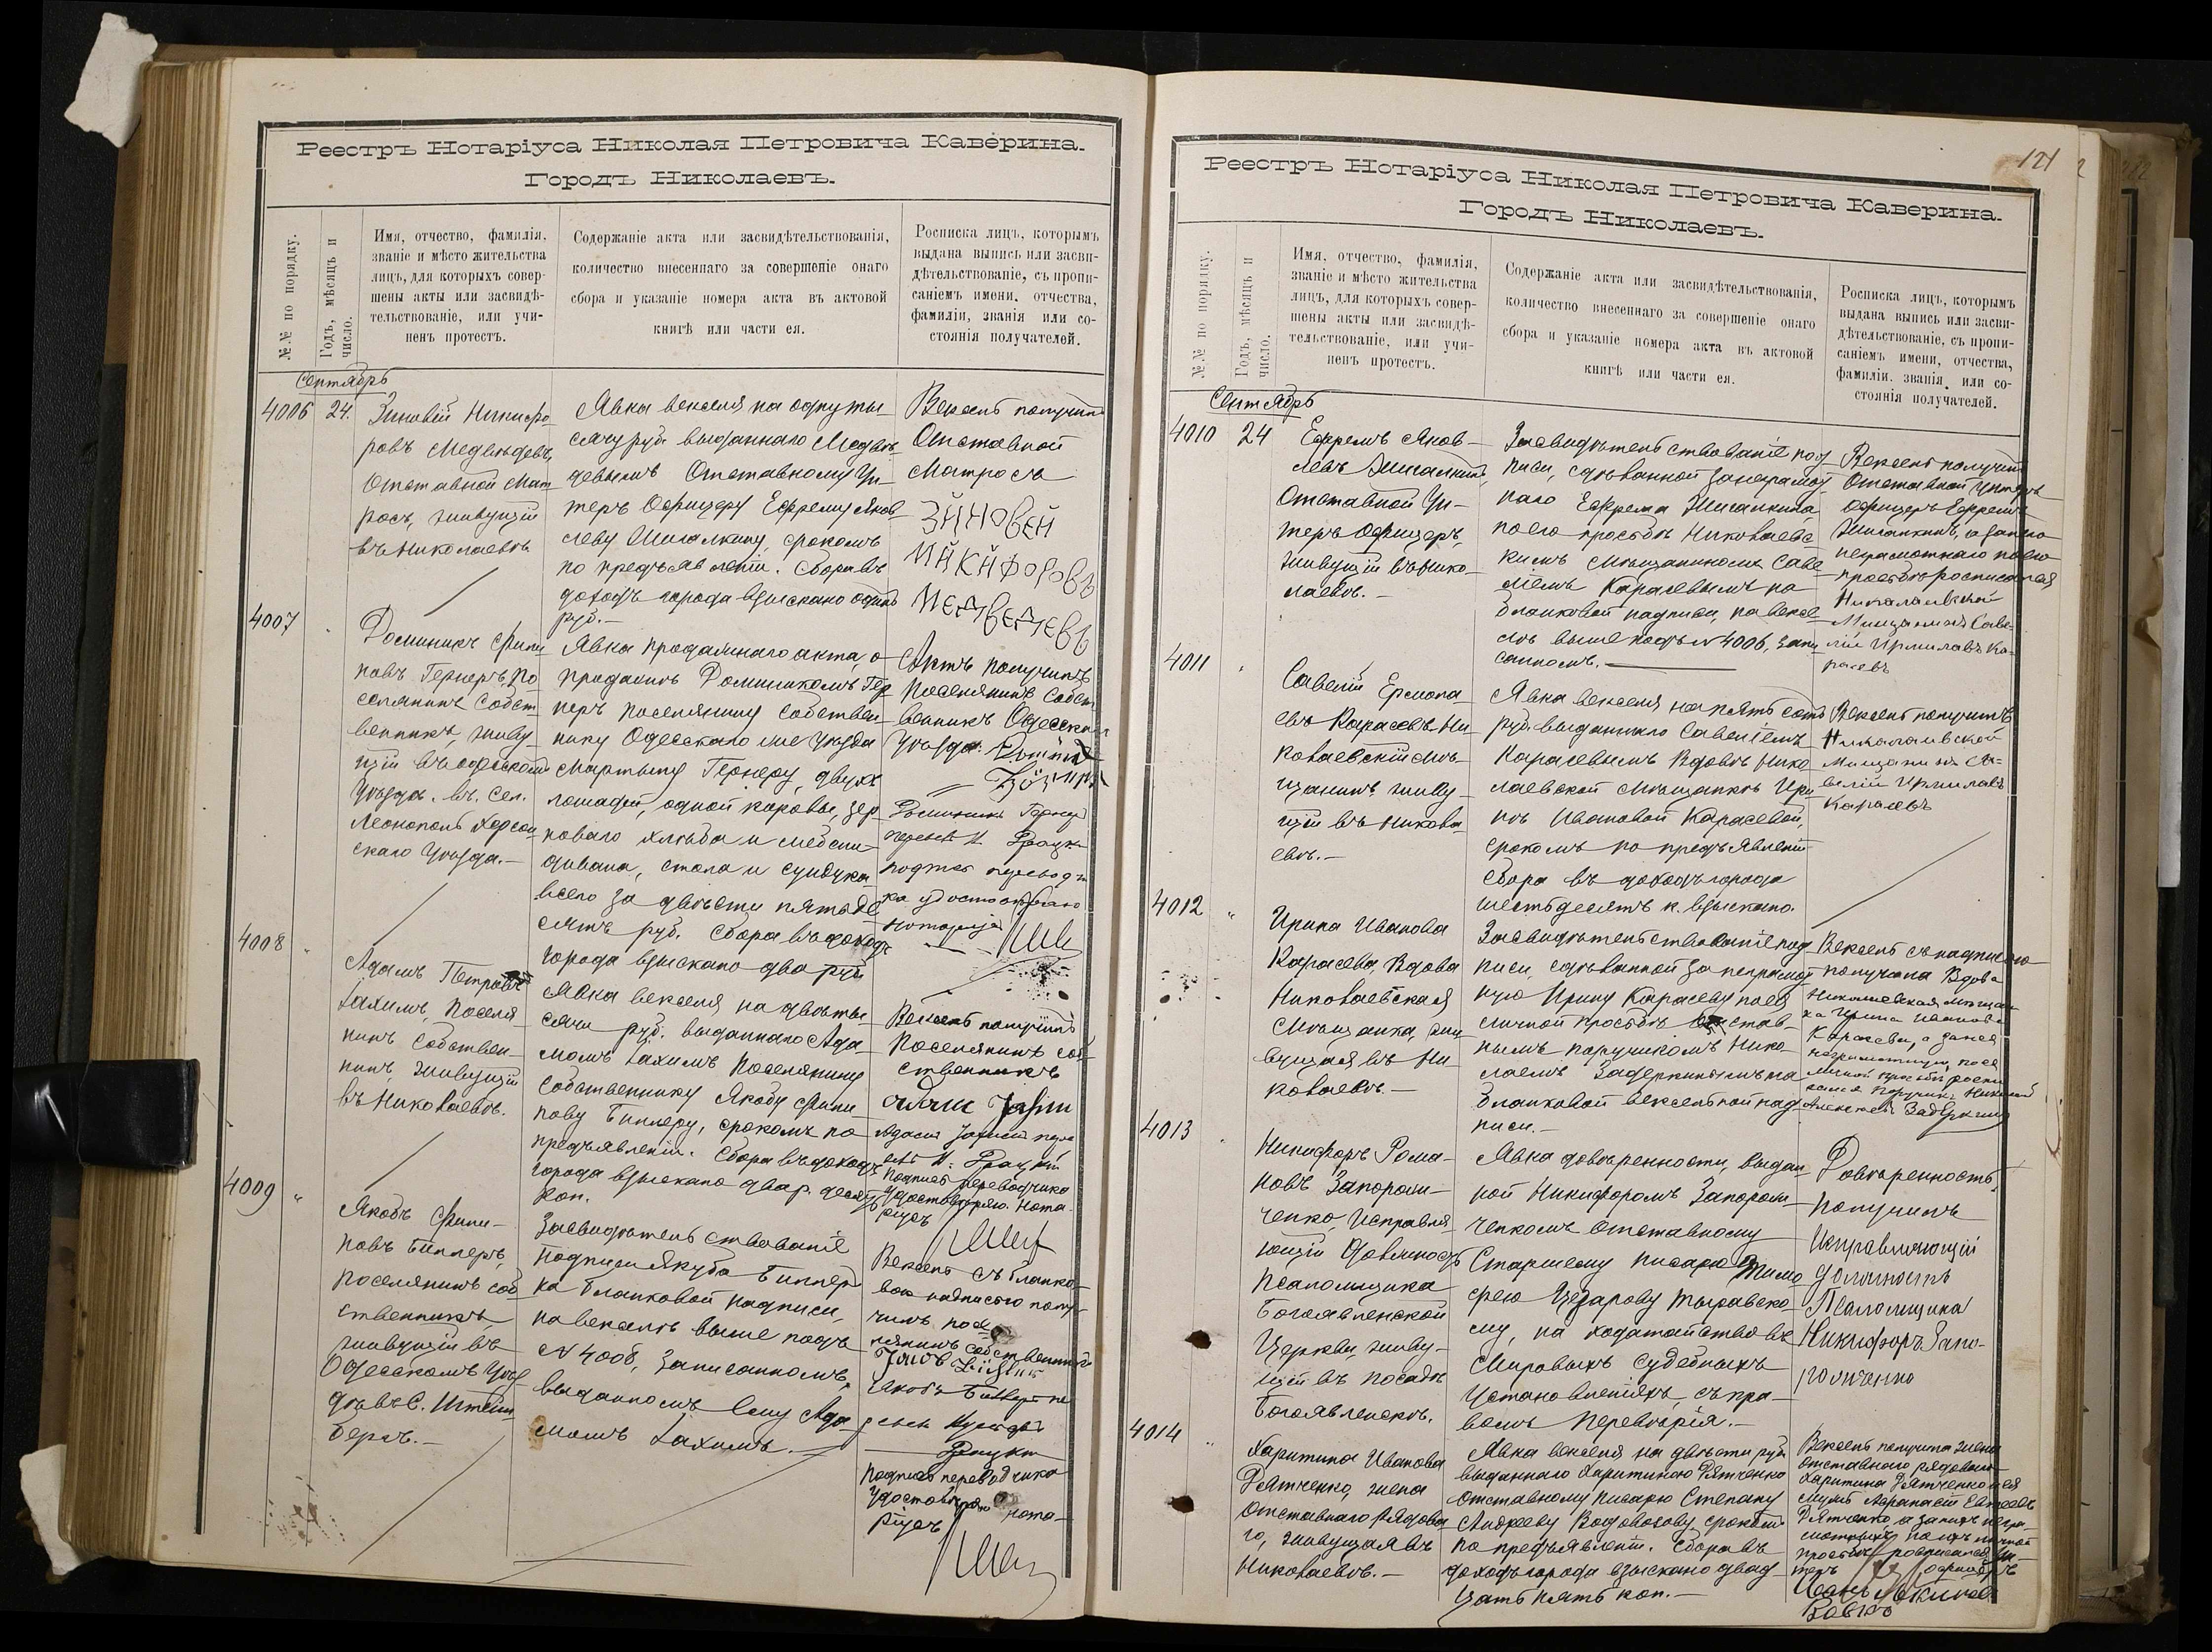 Реестръ Нотаріуса Николая Петровича Каверина.
Городъ Николаевъ.
№№ по порядку.
Годъ, мѣсяцъ и
число.
Имя, отчество, фамилія,
званіе и мѣсто жительства
лицъ, для которыхъ совер-
шены акты или засвидѣ-
тельствованіе, или учи-
ненъ протестъ.
Содержаніе акта или засвидѣтельствованія,
количество внесеннаго за совершеніе онаго
сбора и указаніе номера акта въ актовой
книгѣ или части ея.
Росписка лицъ, которымъ
выдана выпись или засви-
дѣтельствованіе, съ пропи-
саніемъ имени, отчества,
фамиліи, званія или со-
стоянія получателей.
Сентябрь
4006
24.
Зиновій Никифо
ровъ Медвѣдевъ,
Отставной Мат
росъ, живущій
въ Николаевѣ
Явка векселя на одну ты
сячу руб. выданнаго Медвѣ
девымъ Отставному Ун-
теръ Офицеру Ефрему Яков
леву Жигалкину срокомъ
по предъявленіи. Сбора въ
доходъ города взыскано одинъ
руб.—
Вексель получилъ
Отставной
Матросъ
ЗИНОВЕЙ
НИКИФОРОВЪ
МЕДВЕДЕВЪ
4007
Доминикъ Фили
повъ Гернеръ, По
селянинъ Собст
венникъ, живу
щій въ Одесскомъ
Уѣздѣ, въ. Сел.
Леонополь Херсон
скаго Уѣзда.—
Явка продажнаго акта, о
продажѣ Доминикомъ Гер
неръ поселянину собствен
нику Одесскаго же Уѣзда
Мартыну Гернеру, двухъ
лошадей, одной коровы, зер
новаго хлѣба и мебели—
дивана, стола и сундука
всего за двѣсти пятьде
сятъ руб. Сбора въ доходъ
города взыскано два руб.
Актъ получилъ
Поселянинъ Собст
венникъ Одесскаго
Уѣзда.
Доминикъ Гернеръ
подпись переводчи
ка удостовѣряю
Нотаріусъ
4008
"
Адамъ Петровъ
Іахимъ, Поселя
нинъ Собствен-
никъ, живущій
въ Николаевѣ.
Явка векселя на двѣ ты
сячи руб. выданнаго Ада-
момъ Іахимъ Поселянину
Собственнику Якобу Фили
пову Биллеру, срокомъ по
предъявленіи. Сбора въ доходъ
города взыскано два р. десять
коп.
Вексель получилъ
Поселянинъ соб-
ственникъ
подпись переводчика
удостовѣряю. Нота-
ріусъ
4009
"
Якобъ Фили-
повъ Биллеръ,
поселянинъ соб
ственникъ,
живущій въ
Одесскомъ Уѣз
дѣ въ С. Штейн
бергъ.—
Засвидѣтельствованіе
подписи Якуба Биллеръ
на бланковой надписи,
на векселѣ выше подъ
№ 4008, записанномъ,
выданномъ ему Ада
момъ Іахимъ.—
Вексель съ бланко-
вою надписью полу-
чилъ посе
лянинъ собственникъ
подпись переводчика
удостовѣряю нота-
ріусъ
121
Реестръ Нотаріуса Николая Петровича Каверина.
Городъ Николаевъ.
№№ по порядку.
Годъ, мѣсяцъ и
число.
Имя, отчество, фамилія,
званіе и мѣсто жительства
лицъ, для которыхъ совер-
шены акты или засвидѣ-
тельствованіе, или учи-
ненъ протестъ.
Содержаніе акта или засвидѣтельствованія,
количество внесеннаго за совершеніе онаго
сбора и указаніе номера акта въ актовой
книгѣ или части ея.
Росписка лицъ, которымъ
выдана выпись или засви-
дѣтельствованіе, съ пропи-
саніемъ имени, отчества,
фамиліи, званія, или со-
стоянія получателей.
Сентябрь
4010
24
Ефремъ Яков-
левъ Жигалкинъ,
Отставной Ун-
теръ Офицеръ,
живущій въ Нико-
лаевѣ.—
Засвидѣтельствованіе под
писи, сдѣланной за неграмот
наго Ефрема Жигалкина,
по его просьбѣ Николаевс-
кимъ Мѣщаниномъ Саве-
ліемъ Карасевымъ на
бланковой надписи, на вексе
лѣ выше подъ № 4006, запи
санномъ.—
Вексель получилъ
Отставной Унтеръ
Офицеръ Ефремъ
Жигалкинъ, а за него
неграмотнаго по его
просьбѣ росписался
Николаевской
Мищанинъ Саве-
лій Ирмилавъ Ка-
расевъ
4011
Савелій Ермола
евъ Карасевъ Ни
колаевскій Мѣ-
щанинъ живу-
щій въ Никола
евѣ.—
Явка векселя на пять сотъ
руб. выданнаго Савеліемъ
Карасевымъ Вдовѣ Нико
лаевской Мѣщанкѣ Ири
нѣ Ивановой Карасевой,
срокомъ по предъявленіи
сбора въ доходъ города
шестьдесятъ к. взыскано.
Вексель получилъ
Николаевской
Мищанинъ Са-
велій Ирмилавъ
Карасевъ
4012
"
Ирина Иванова
Карасева Вдова
Николаевская
Мѣщанка, жи
вущая въ Ни
колаевѣ.—
Засвидѣтельствованіе под
писи, сдѣланной за неграмот
ную Ирину Карасеву по ея
личной просьбѣ Отстав-
нымъ поручикомъ Нико-
лаемъ Задеркинымъ на
бланковой вексельной над
писи.—
Вексель съ надписью
получила Вдова
Николаевская мѣщан
ка Ирина Иванова
Карасева, а за нея
неграмотную, по ея
личной просьбѣ роспи
сался Поручикъ Николай
Алексѣевъ Задеркинъ
4013
Никифоръ Рома-
новъ Запорож-
ченко, Исправля
ющій Должность
Псаломщика
Богоявленской
Церкви, живу-
щій въ посадѣ
Богоявленскѣ.
Явка довѣренности, выдан
ной Никифоромъ Запорож
ченкомъ Отставному
Старшему писарю Тимо
фею Цезарову Тыравско
му, на ходатайство въ
Мировыхъ Судебныхъ
Установленіяхъ, съ пра-
вомъ перевѣрія.—
Довѣренность
получилъ
Исправляющій
должность
Псаломщика
Никифоръ Запо-
рожченко
4014
"
Харитина Иванова
Дятченко, жена
Отставнаго Рядова
го, живущая въ
Николаевѣ.—
Явка векселя на двѣсти руб.
выданнаго Харитиною Дятченко
Отставному Писарю Степану
Андрееву Водовозову, срокомъ
по предъявленіи. Сбора въ
доходъ города взыскано двад-
цать пять коп.—
Вексель получила жена
отставнаго рядоваго
Харитина Дятченко и ея
мужъ Афанасій Евсеевъ
Дятченко а за нихъ негра-
мотныхъ по ихъ личной
просьбѣ росписался Ун-
теръ офицеръ